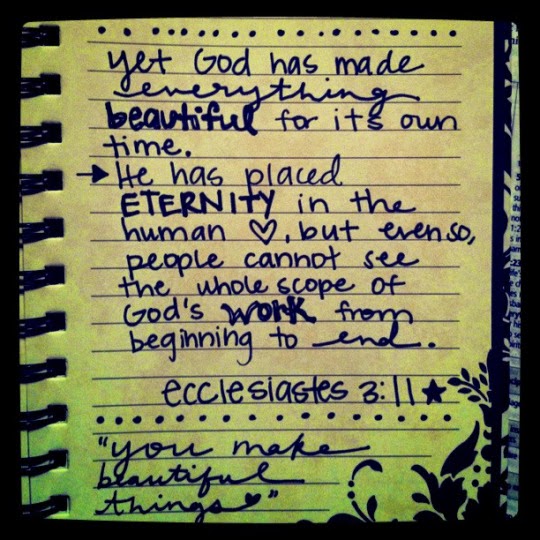 yet God has made
everything
beautiful for it's own
time.
→ He has placed
ETERNITY in the
human ♡, but even so,
people cannot see
the whole scope of
God's work from
beginning to end.
ecclesiastes 3:11 ★
"you make
beautiful
things ♥"